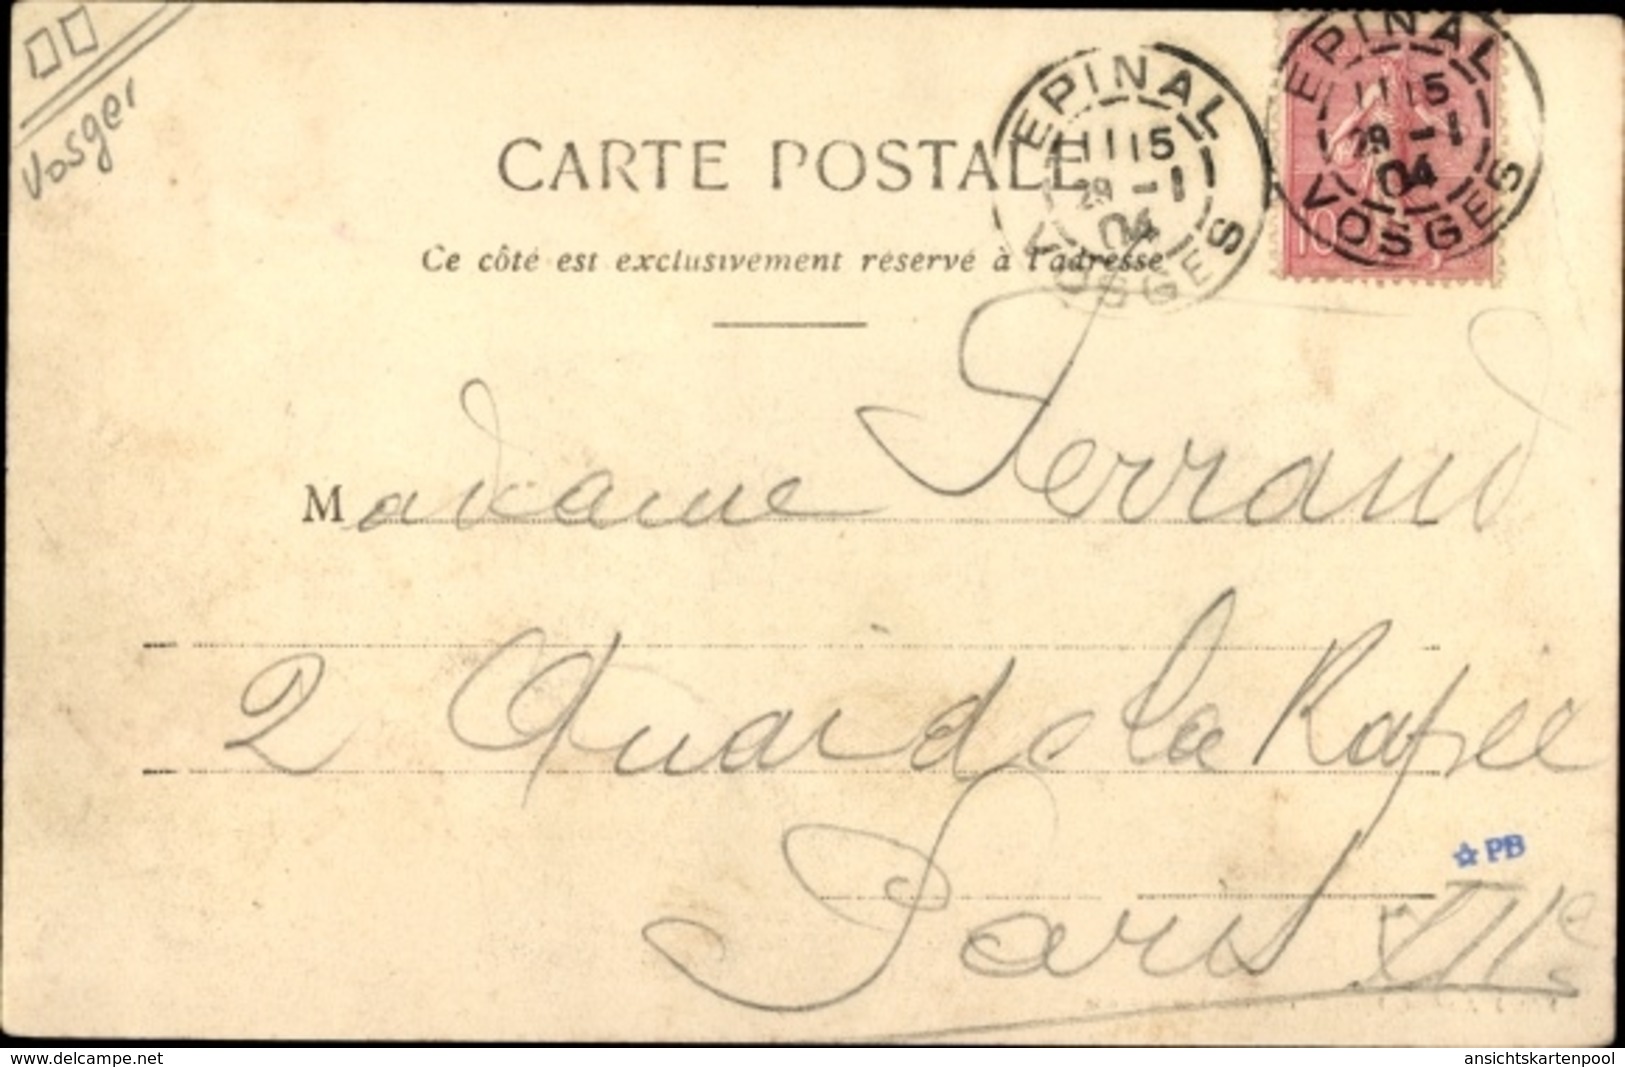 Vosges
CARTE POSTALE
Ce côté est exclusivement réservé à l'adresse
EPINAL
11 15
29 -1
04
VOSGES
EPINAL
11 15
29 -1
04
VOSGES
10
Madame Ferrand
2 Quai de la Rapée
Paris XIIe
PB
www.delcampe.net
ansichtskartenpool